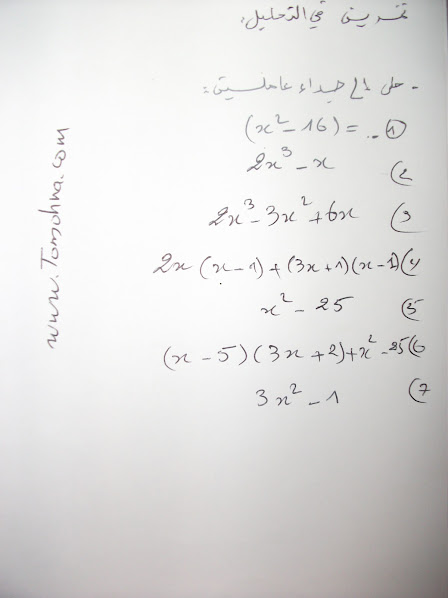 تمرين في التحليل:
حلل إلى جداء عاملين:
1) (x² - 16) = ..
2) 2x³ - x
3) 2x³ - 3x² + 6x
4) 2x (x - 1) + (3x + 1)(x - 1)
5) x² - 25
6) (x - 5)(3x + 2) + x² - 25
7) 3x² - 1
www.Tomohna.com